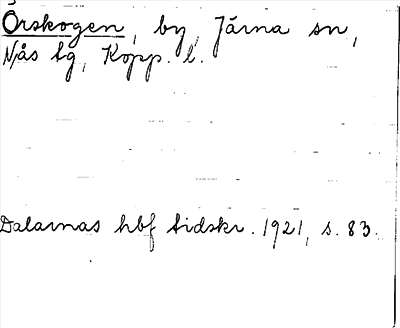 Örskogen, by, Järna sn,
Nås tg, Kopp. l.
Dalarnas hbf tidskr. 1921, s. 83.